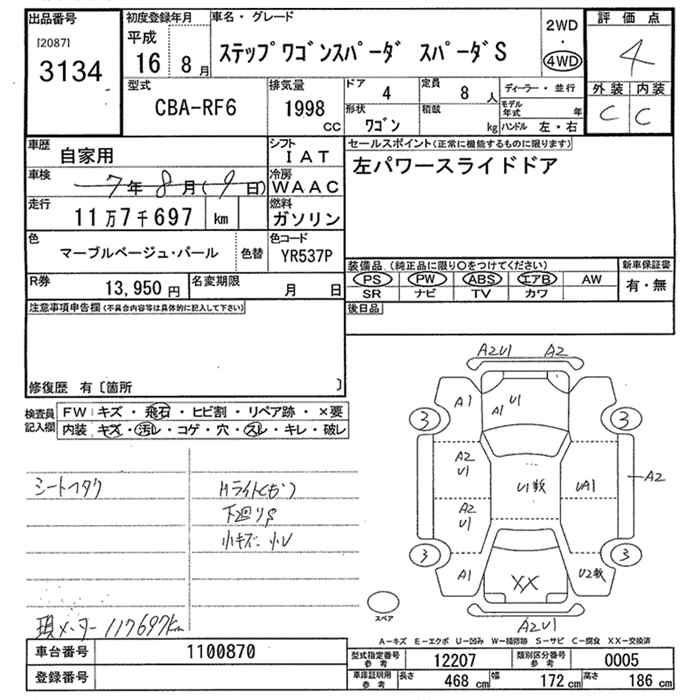 出品番号
[2087]
3134
初度登録年月
平成
16年 8月
車名・グレード
ステップワゴンスパーダ スパーダS
2WD
・
4WD
評価点
4
外装 内装
C C
型式
CBA-RF6
排気量
1998
CC
ドア
4
定員
8人
形状
ワゴン
積載
kg
ディーラー・並行
モデル年式 年
ハンドル 左・右
車歴
自家用
シフト
IAT
車検
7年8月(9日)
冷房
WAAC
走行
11万7千697 km
燃料
ガソリン
色
マーブルベージュ・パール
色替
色コード
YR537P
R券
13,950円
名変期限
月 日
セールスポイント(正常に機能するものに限ります)
左パワースライドドア
装備品(純正品に限り○をつけてください)
PS PW ABS エアB AW
SR ナビ TV カワ
新車保証書
有・無
後日品
注意事項申告欄(不具合内容等は具体的に記入して下さい)
修復歴 有〔箇所 〕
検査員記入欄
FW キズ・飛石・ヒビ割・リペア跡・×要
内装 キズ・汚レ・コゲ・穴・スレ・キレ・破レ
シートヘタリ
Hライトくもり
下廻りS
小キズ・小U
現メーター117697km
A2U1 A2
A1
U1
A1
3
3
A2
U1
U1数
UA1
A2
A2
U1
3
3
A1
XX
U2数
A2U1
スペア
A-キズ E-エクボ U-凹み W-補修跡 S-サビ C-腐食 XX-交換済
車台番号
1100870
登録番号
型式指定番号
参考
12207
類別区分番号
参考
0005
車庫証明用
参考
長さ
468 cm
幅
172 cm
高さ
186 cm